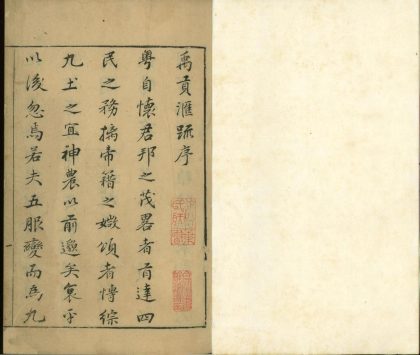 禹貢滙疏序
粵自懷君邦之茂畧者首達四
民之務摛帝籍之媺頌者慱綜
九土之宜神農以前邈矣裒乎
以後忽焉若夫五服變而爲九